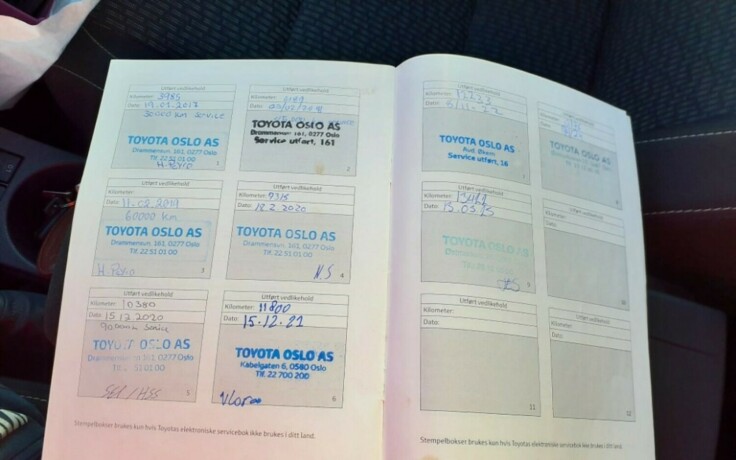 Utført vedlikehold
Kilometer: 3785
Dato: 19.01.2018
30000 km service
TOYOTA OSLO AS
Drammensvn. 161, 0277 Oslo
Tlf. 22 51 01 00
1
Utført vedlikehold
Kilometer:
Dato:
TOYOTA OSLO AS
Drammensvn. 161, 0277 Oslo
Service utført, 161
2
Utført vedlikehold
Kilometer:
Dato: 11.02.2019
60000 km
TOYOTA OSLO AS
Drammensvn. 161, 0277 Oslo
Tlf. 22 51 01 00
3
Utført vedlikehold
Kilometer: 9315
Dato: 12.2.2020
TOYOTA OSLO AS
Drammensvn. 161, 0277 Oslo
Tlf. 22 51 01 00
N.S
4
Utført vedlikehold
Kilometer: 10380
Dato: 15.12.2020
TOYOTA OSLO AS
Drammensvn. 161, 0277 Oslo
Tlf. 22 51 01 00
5
Utført vedlikehold
Kilometer: 11800
Dato: 15.12.21
TOYOTA OSLO AS
Kabelgaten 6, 0580 Oslo
Tlf. 22 700 200
6
Stempelbokser brukes kun hvis Toyotas elektroniske servicebok ikke brukes i ditt land.
Utført vedlikehold
Kilometer: 12233
Dato:
TOYOTA OSLO AS
Service utført, 16
7
Utført vedlikehold
TOYOTA OSLO AS
8
Utført vedlikehold
Kilometer:
Dato: 15.05.25
TOYOTA OSLO AS
9
Utført vedlikehold
Kilometer:
Dato:
10
Utført vedlikehold
Kilometer:
Dato:
11
Utført vedlikehold
Kilometer:
Dato:
12
Stempelbokser brukes kun hvis Toyotas elektroniske servicebok ikke brukes i ditt land.